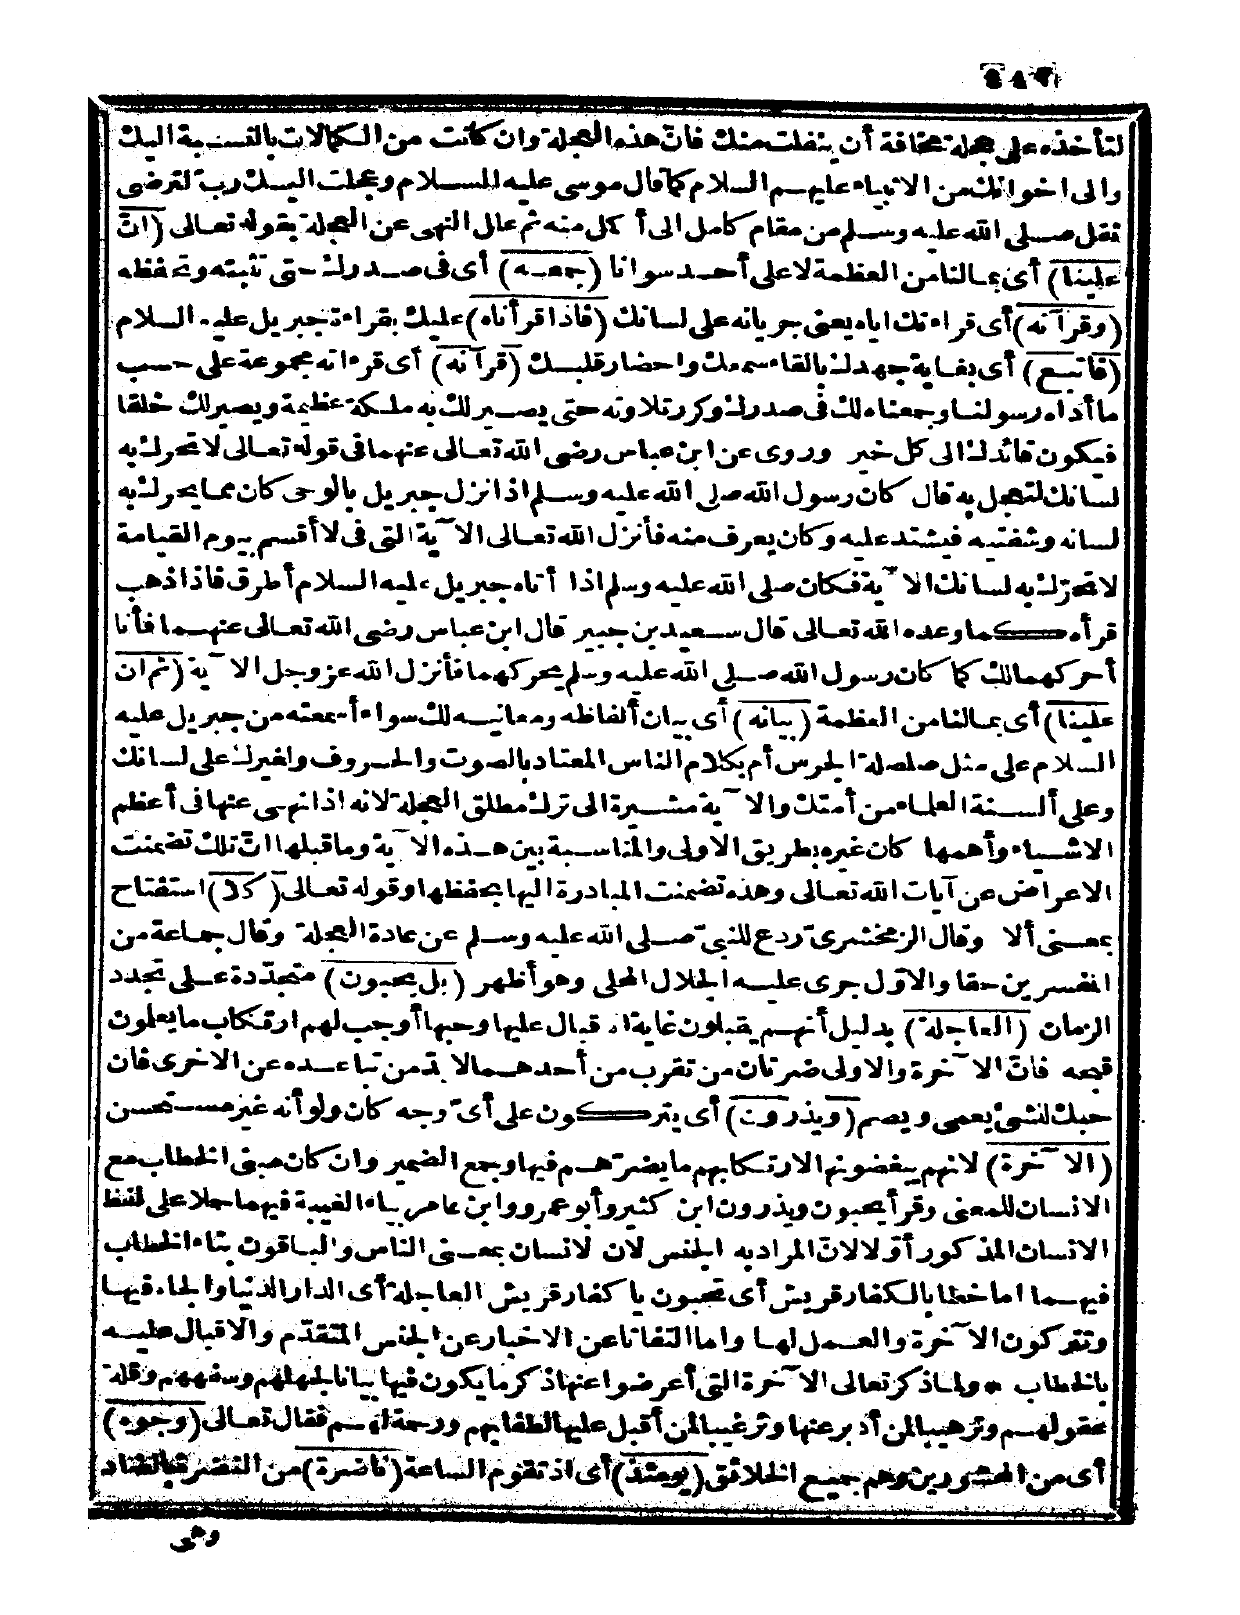 لتأخذه على عجلة مخافة أن ينفلت منك فانّ هذه العجلة وان كانت من الكمالات بالنسبة اليك
والى اخوانك من الانبياء عليهم السلام كما قال موسى عليه السلام وعجلت اليك رب لترضى
نقل صلى الله عليه وسلم من مقام كامل الى أكمل منه ثم علل النهى عن العجلة بقوله تعالى (انّ
علينا) أى بمالنا من العظمة لا على أحد سوانا (جمعه) أى فى صدرك حتى نثبته وتحفظه
(وقرآنه) أى قراءتك اياه يعنى جريانه على لسانك (فاذا قرأناه) عليك بقراءة جبريل عليه السلام
(فاتبع) أى بغاية جهدك بالقاء سمعك واحضار قلبك (قرآنه) أى قراءته مجموعة على حسب
ما أداه رسولنا وجمعناه لك فى صدرك وكرر تلاوته حتى يصير لك به ملكة عظيمة ويصير لك خلقا
فيكون قائدك الى كل خير وروى عن ابن عباس رضى الله تعالى عنهما فى قوله تعالى لا تحرك به
لسانك لتعجل به قال كان رسول الله صلى الله عليه وسلم اذا نزل جبريل بالوحى كان مما يحرك به
لسانه وشفتيه فيشتد عليه وكان يعرف منه فأنزل الله تعالى الآية التى فى لا أقسم بيوم القيامة
لا تحرّك به لسانك الآية فكان صلى الله عليه وسلم اذا أتاه جبريل عليه السلام أطرق فاذا ذهب
قرأه كما وعده الله تعالى قال سعيد بن جبير قال ابن عباس رضى الله تعالى عنهما فأنا
أحركهما لك كما كان رسول الله صلى الله عليه وسلم يحركهما فأنزل الله عز وجل الآية (ثم ان
علينا) أى بمالنا من العظمة (بيانه) أى بيان ألفاظه ومعانيه لك سواء أسمعته من جبريل عليه
السلام على مثل صلصلة الجرس أم بكلام الناس المعتاد بالصوت والحروف ولغيرك على لسانك
وعلى ألسنة العلماء من أمتك والآية مشيرة الى ترك مطلق العجلة لانه اذا نهى عنها فى أعظم
الاشياء وأهمها كان غيره بطريق الاولى والمناسبة بين هذه الآية وما قبلها انّ تلك تضمنت
الاعراض عن آيات الله تعالى وهذه تضمنت المبادرة اليها بحفظها وقوله تعالى (كلا) استفتاح
بمعنى ألا وقال الزمخشرىّ ردع للنبىّ صلى الله عليه وسلم عن عادة العجلة وقال جماعة من
المفسرين حقا والاوّل جرى عليه الجلال المحلى وهو أظهر (بل يحبون) متجدّدة على تجدد
الزمان (العاجلة) بدليل أنهم يقبلون غاية الاقبال عليها وحبها أوجب لهم ارتكاب ما يعلمون
قبحه فانّ الآخرة والاولى ضرتان من تقرب من أحدهما لا بدّ من تباعده عن الاخرى فان
حبك للشئ يعمى ويصم (ويذرون) أى يتركون على أىّ وجه كان ولو أنه غير مستحسن
(الآخرة) لانهم يبغضونها لارتكابهم ما يضرّهم فيها وجمع الضمير وان كان مبنى الخطاب مع
الانسان للمعنى وقرأ يحبون ويذرون ابن كثير وأبو عمرو وابن عامر بياء الغيبة فيهما حملا على لفظ
الانسان المذكور أوّلا لانّ المراد به الجنس لان الانسان بمعنى الناس والباقون بتاء الخطاب
فيهما اما خطابا لكفار قريش أى تحبون يا كفار قريش العاجلة أى الدار الدنيا والجاه فيها
وتتركون الآخرة والعمل لها واما التفاتا عن الاخبار عن الجنس المتقدّم والاقبال عليه
بالخطاب * ولما ذكر تعالى الآخرة التى أعرضوا عنها ذكر ما يكون فيها بيانا لجهلهم وسفههم وقلة
عقولهم وترهيبا لمن أدبر عنها وترغيبا لمن أقبل عليها لطفا بهم ورحمة لهم فقال تعالى (وجوه)
أى من المحشورين وهم جميع الخلائق (يومئذ) أى اذ تقوم الساعة (ناضرة) من النضرة بالضاد
وهى